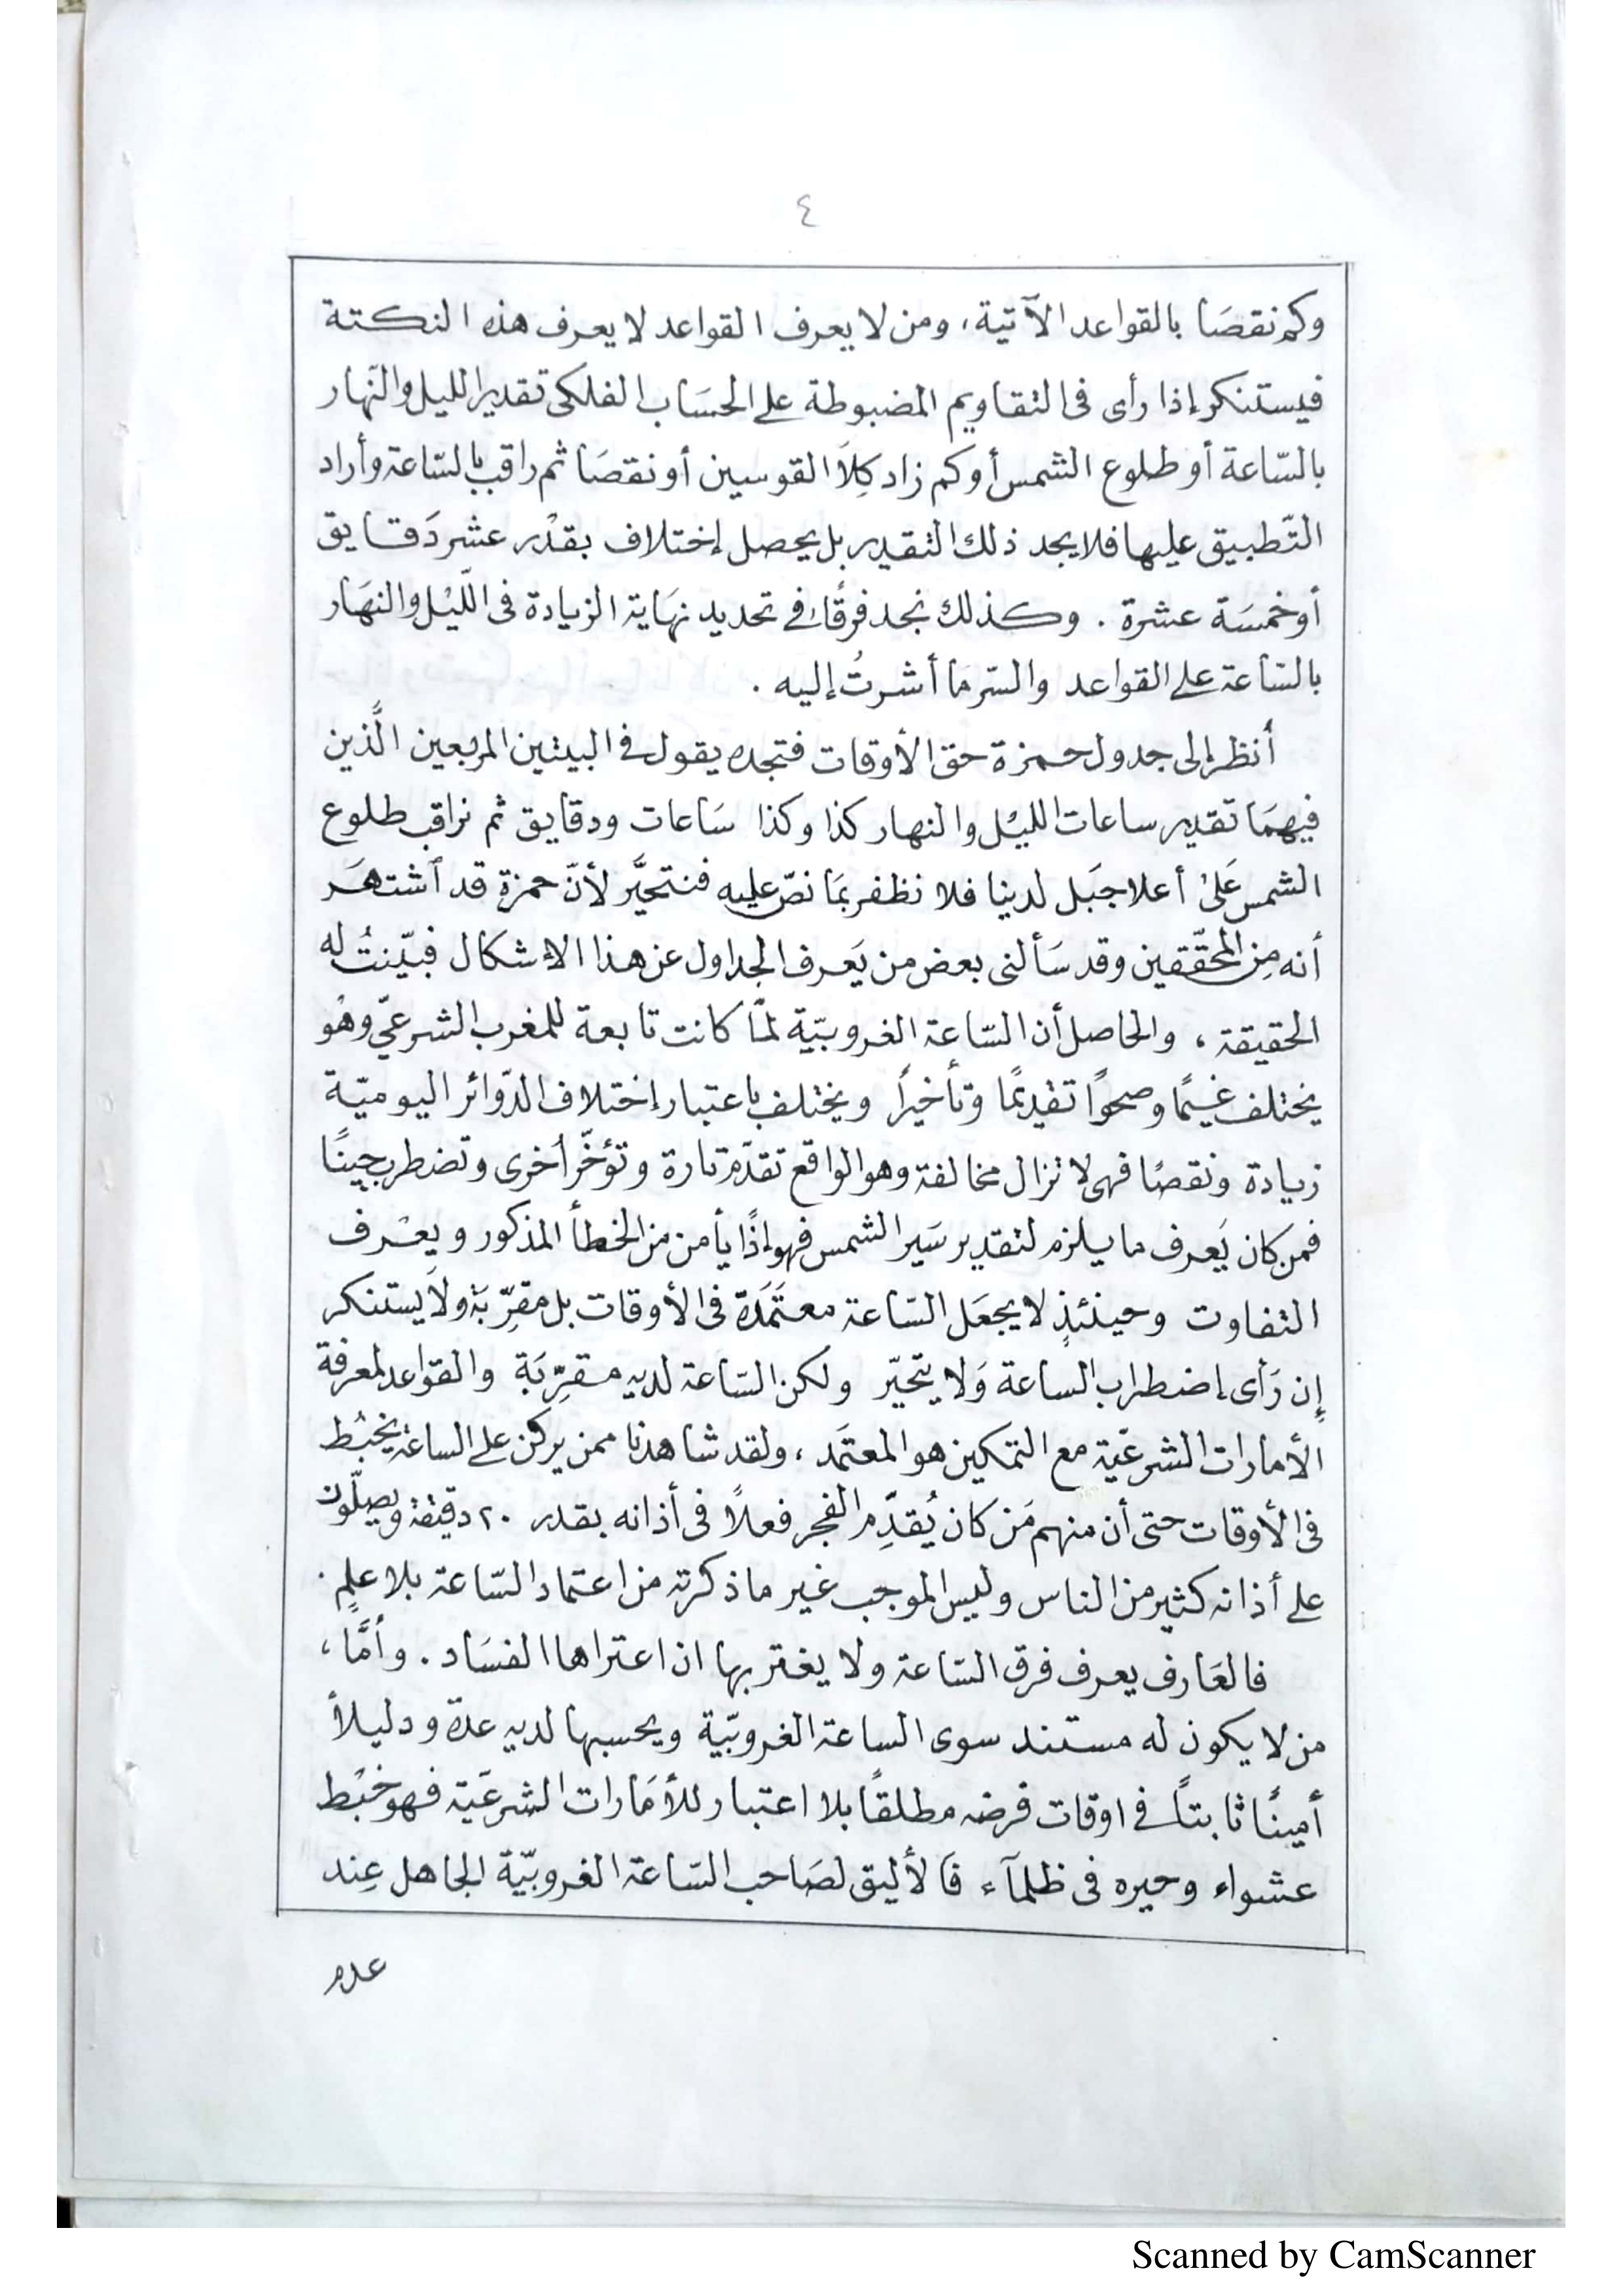 ٤
وكم نقصَا بالقواعد الآتية، ومن لا يعرف القواعد لا يعرف هذه النكتة
فيستنكر إذا رأى فى التقاويم المضبوطة على الحسَاب الفلكى تقدير الليل والنّهار
بالسّاعة أو طلوع الشمس أو كم زاد كِلاَ القوسين أو نقصَا ثم راقب بالسّاعة وأراد
التّطبيق عليها فلا يجد ذلك التقدير بل يحصل إختلاف بقدْر عشر دَقايق
أو خمسَة عشرة . وكذلك نجد فرقًا فى تحديد نهَاية الزيادة فى اللّيْل والنهَار
بالسّاعة على القواعد والسّر مَا أشرتُ إليه .
أنظر إلى جدول حمزة حق الأوقات فتجده يقول فى البيتين المربعين الَّذين
فيهمَا تقدير ساعات الليْل والنهار كذا وكذا سَاعات ودقايق ثم نراقب طلوع
الشمس عَلىٰ أعلا جبَل لدينا فلا نظفر بمَا نصّ عليه فنتحيَّر لأنّ حمزة قد ٱشتهَر
أنه مِن المحقّقين وقد سَألنى بعض من يَعرف الجداول عن هذا الإشكال فبيّنتُ له
الحقيقة ، والحاصل أن السّاعة الغروبيّة لمّا كانت تابعة للمغرب الشرعيّ وهُو
يختلف غيمًا وصحوًا تقديمًا وتأخيرًا ويختلف باعتبار إختلاف الدّوائر اليوميّة
زيادة ونقصًا فهى لا تزال مخالفة وهو الواقع تقدّم تارة وتؤخّر أخرى وتضطرب حينًا
فمن كان يَعرف ما يلزم لتقدير سَير الشمس فهو إذًا يأمن من الخطأ المذكور ويعْرف
التفاوت وحينئذٍ لا يجعَل السّاعة معتمَدة فى الأوقات بل مقرِّبَة ولاَ يستنكر
إن رَأى إضطراب الساعة وَلا يتحيّر ولكن السّاعة لديه مقرِّبَة والقواعد لمعرفة
الأمارات الشرعيّة مع التمكين هو المعتمَد ، ولقد شاهدنا ممن يركن على الساعة يخبُط
فى الأوقات حتى أن منهم مَن كان يُقدِّم الفجر فعلاً فى أذانه بقدر ٢٠ دقيقة ويصلّون
على أذانه كثير من الناس وليس الموجب غير ما ذكرته من اعتماد السّاعة بلا علمٍ .
فالعَارف يعرف فرق السّاعة ولا يغتر بها ان اعتراها الفسَاد . وأمَّا ،
من لا يكون له مستند سوى الساعة الغروبيّة ويحسبها لديه عدة ودليلاً
أمينًا ثابتاً فى اوقات فرضه مطلقًا بلا اعتبار للأمَارات الشرعيّة فهو خبْط
عشواء وحيره فى ظلمآء فَالأليق لصَاحب السّاعة الغروبيّة الجاهل عِند
عدم
Scanned by CamScanner